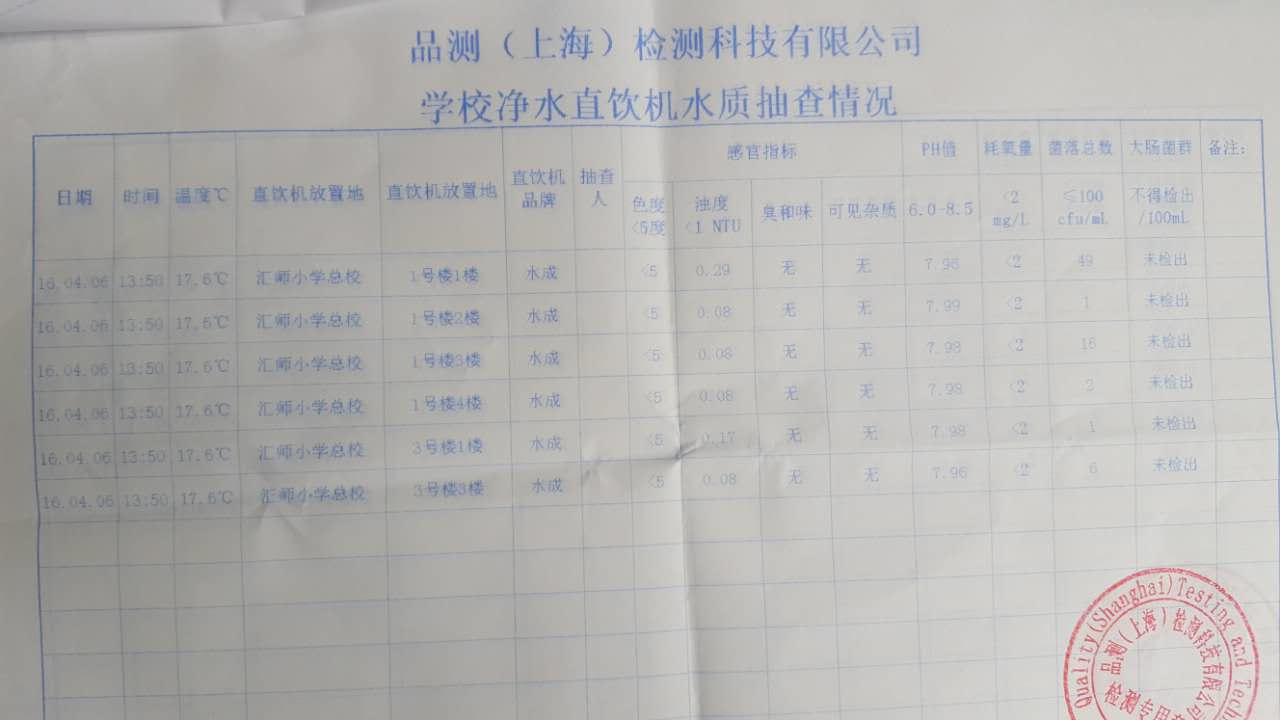 品测（上海）检测科技有限公司
学校净水直饮机水质抽查情况
日期 时间 温度℃ 直饮机放置地 直饮机放置地 直饮机品牌 抽查人 感官指标 PH值 耗氧量 菌落总数 大肠菌群 备注：
色度<5度 浊度<1 NTU 臭和味 可见杂质 6.0-8.5 <2 mg/L ≤100 cfu/mL 不得检出/100mL
16.04.06 13:50 17.6℃ 汇师小学总校 1号楼1楼 水成 <5 0.29 无 无 7.96 <2 49 未检出
16.04.06 13:50 17.6℃ 汇师小学总校 1号楼2楼 水成 <5 0.08 无 无 7.99 <2 1 未检出
16.04.06 13:50 17.6℃ 汇师小学总校 1号楼3楼 水成 <5 0.08 无 无 7.98 <2 16 未检出
16.04.06 13:50 17.6℃ 汇师小学总校 1号楼4楼 水成 <5 0.08 无 无 7.98 <2 2 未检出
16.04.06 13:50 17.6℃ 汇师小学总校 3号楼1楼 水成 <5 0.17 无 无 7.98 <2 1 未检出
16.04.06 13:50 17.6℃ 汇师小学总校 3号楼3楼 水成 <5 0.08 无 无 7.96 <2 6 未检出
Quality(Shanghai)Testing and
品测（上海）检测科技有限公司
检测专用